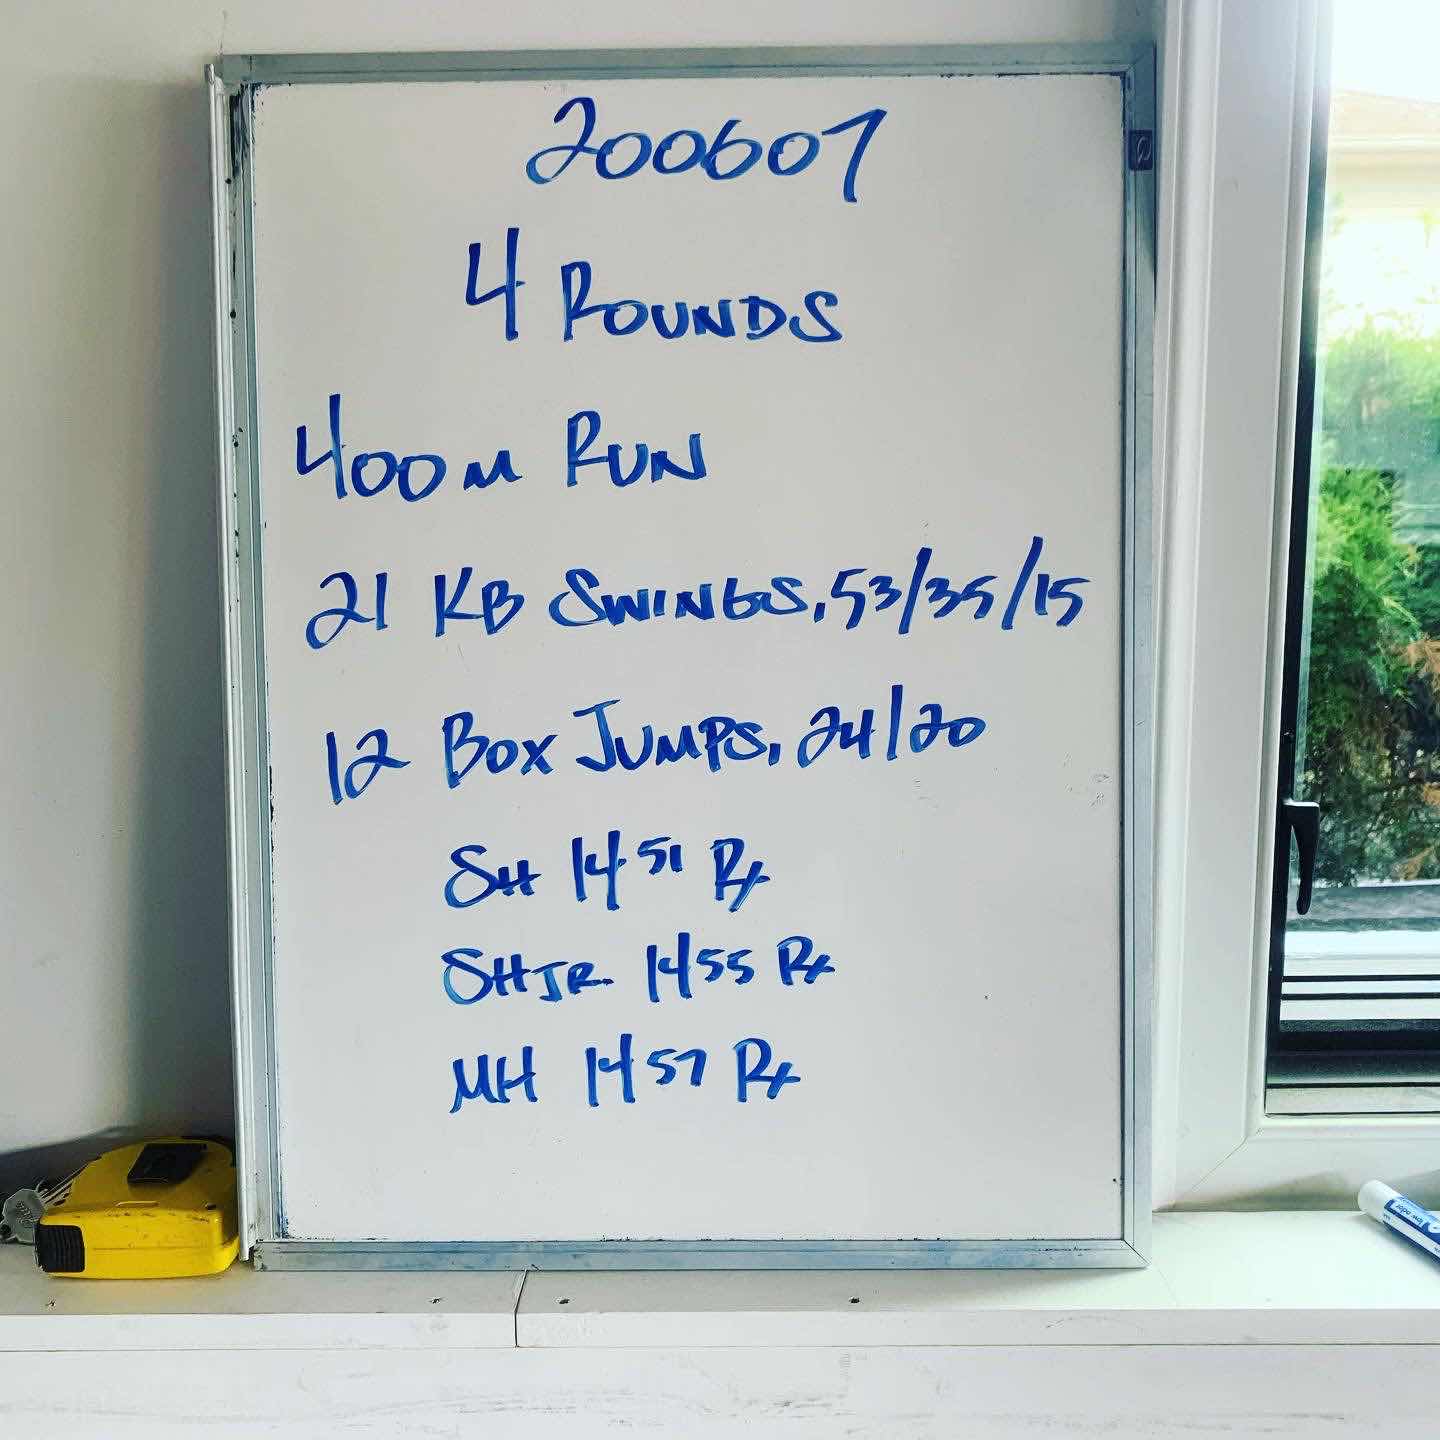 200607
4 ROUNDS
400M RUN
21 KB SWINGS, 53/35/15
12 BOX JUMPS, 24/20
SH 14 51 Rx
SH JR. 14 55 Rx
MH 14 57 Rx
low odor